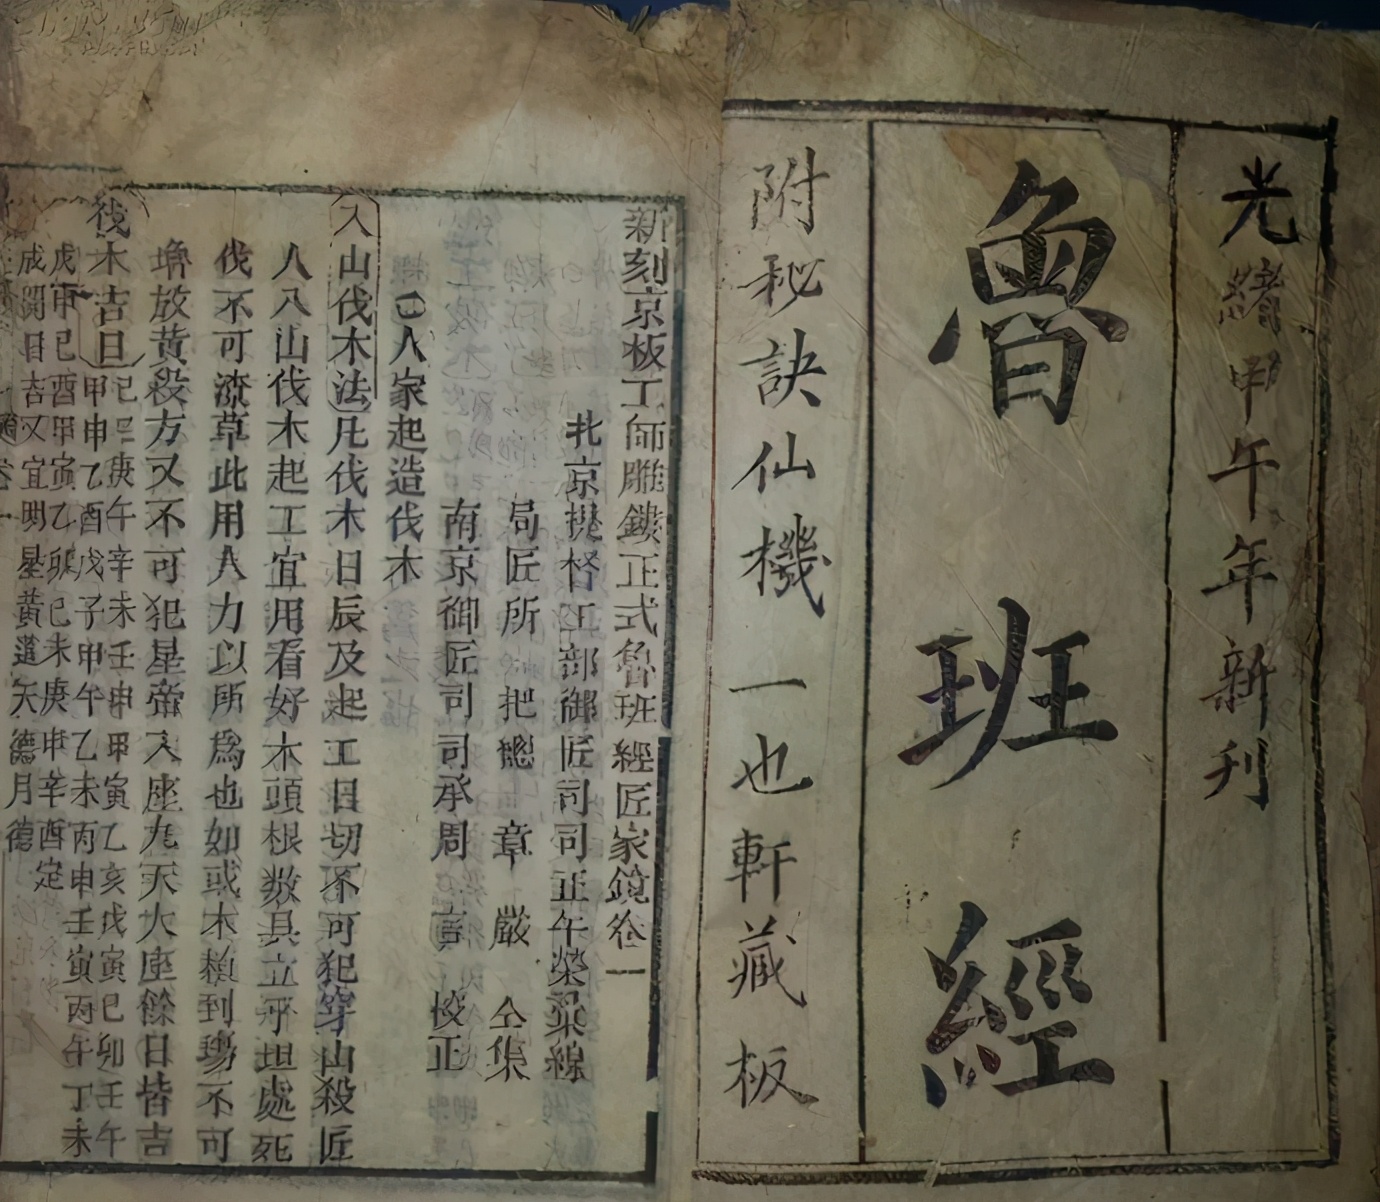 光緒甲午年新刊
魯班經
附秘訣仙機一也軒藏板
新刻京板工師雕鏤正式魯班經匠家鏡卷一
北京提督工部御匠司司正午榮彙線
局匠所把總章嚴仝集
南京御匠司司承周言校正
人家起造伐木
入山伐木法凡伐木日辰及起工日切不可犯穿山殺匠
人入山伐木起工宜用看好木頭根数具立平坦處死
伐不可潦草此用人力以所爲也如或木頼到塲不可
堆放黃殺方又不可犯星帝入座九天大座餘日皆吉
伐木吉日
己巳庚午辛未壬申甲寅乙亥戊寅己卯壬午
甲申乙酉戊子甲午乙未丙申壬寅丙午丁未
戊申己酉甲寅乙卯己未庚申辛酉定
成開日吉又宜明星黃道天德月德